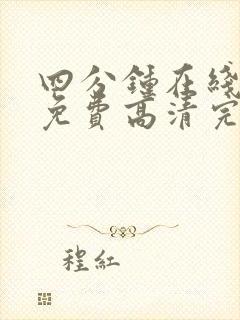 四分鍾在綫
免費高清完
程紅